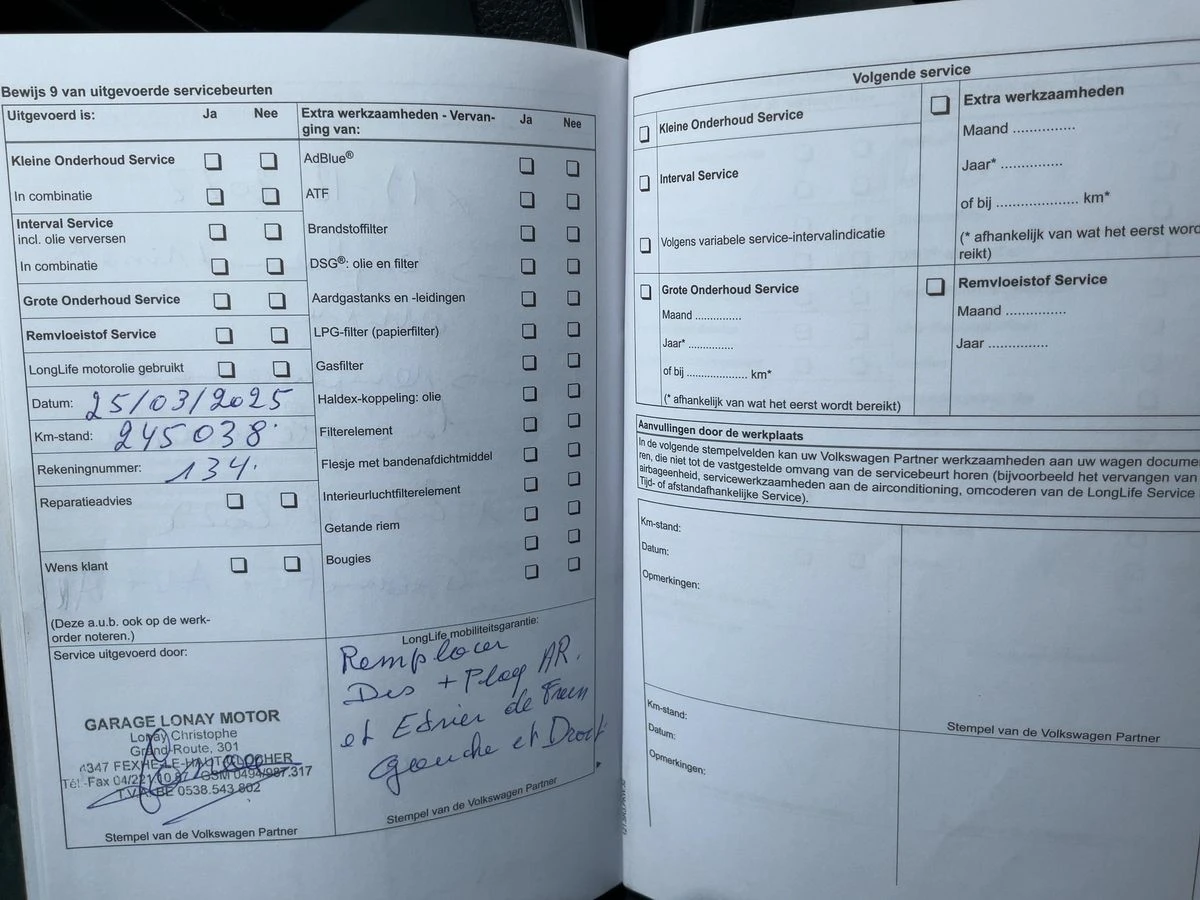 Bewijs 9 van uitgevoerde servicebeurten
Uitgevoerd is: Ja Nee
Kleine Onderhoud Service
In combinatie
Interval Service
incl. olie verversen
In combinatie
Grote Onderhoud Service
Remvloeistof Service
LongLife motorolie gebruikt
Datum: 25/03/2025
Km-stand: 245038
Rekeningnummer: 134.
Reparatieadvies
Wens klant
(Deze a.u.b. ook op de werk-
order noteren.)
Service uitgevoerd door:
GARAGE LONAY MOTOR
Lonay Christophe
Grand-Route, 301
4347 FEXHE-LE-HAUT-CLOCHER
Tél.-Fax 04/221 10 87 GSM 0494/987.317
T.V.A. BE 0538.543.802
Stempel van de Volkswagen Partner
Extra werkzaamheden - Vervan-
ging van: Ja Nee
AdBlue®
ATF
Brandstoffilter
DSG®: olie en filter
Aardgastanks en -leidingen
LPG-filter (papierfilter)
Gasfilter
Haldex-koppeling: olie
Filterelement
Flesje met bandenafdichtmiddel
Interieurluchtfilterelement
Getande riem
Bougies
LongLife mobiliteitsgarantie:
Remplacer
Dis + Plaq AR.
et Etrier de Frein
Gauche et Droit
Stempel van de Volkswagen Partner
Volgende service
Kleine Onderhoud Service
Interval Service
Volgens variabele service-intervalindicatie
Grote Onderhoud Service
Maand ...............
Jaar* ...............
of bij .................... km*
(* afhankelijk van wat het eerst wordt bereikt)
Extra werkzaamheden
Maand ...............
Jaar* ...............
of bij .................... km*
(* afhankelijk van wat het eerst word
reikt)
Remvloeistof Service
Maand ...............
Jaar ...............
Aanvullingen door de werkplaats
In de volgende stempelvelden kan uw Volkswagen Partner werkzaamheden aan uw wagen docume
ren, die niet tot de vastgestelde omvang van de servicebeurt horen (bijvoorbeeld het vervangen van
airbageenheid, servicewerkzaamheden aan de airconditioning, omcoderen van de LongLife Service
Tijd- of afstandafhankelijke Service).
Km-stand:
Datum:
Opmerkingen:
Stempel van de Volkswagen Partner
Km-stand:
Datum:
Opmerkingen: